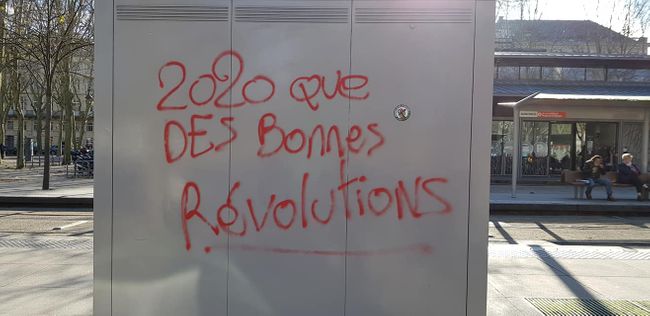 2020 que
DES Bonnes
Révolutions